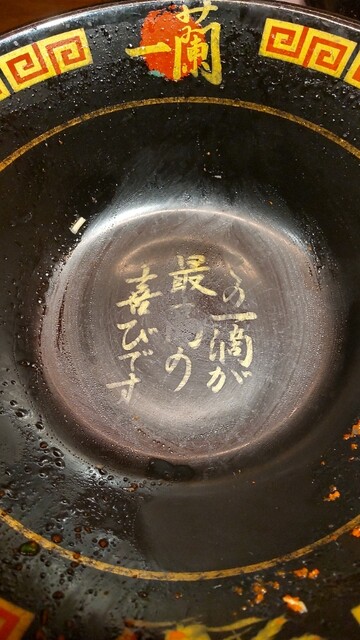 一蘭
の一滴が
最 の
喜びです